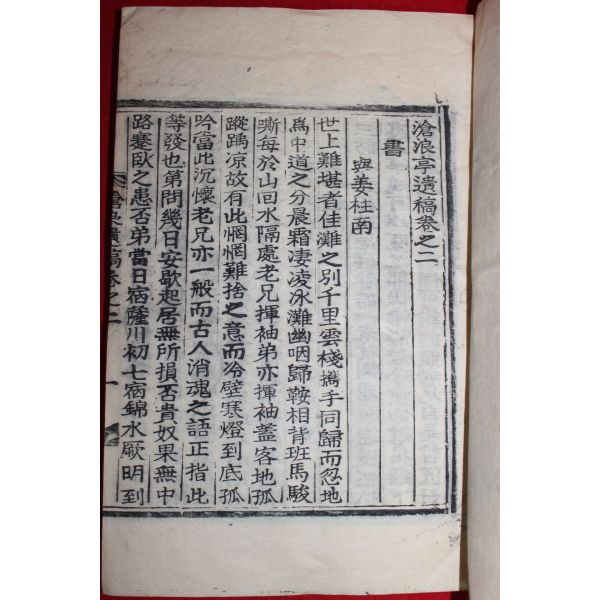 滄浪亭遺稿卷之二
書
與姜柱南
世上難堪者佳灘之別千里雲棧携手同歸而忽地
爲中道之分晨霜凄凌氷灘幽咽歸鞍相背班馬駿
嘶每於山回水隔處老兄揮袖弟亦揮袖盖客地孤
蹤踽凉故有此惘惘難捨之意而冷壁寒燈到底孤
吟當此沉懷老兄亦一般而古人消魂之語正指此
等發也第問幾日安歇起居無所損否貴奴果無中
路蹇臥之患否弟當日宿薩川初七宿錦水厥明到
滄浪亭遺稿卷之二 一